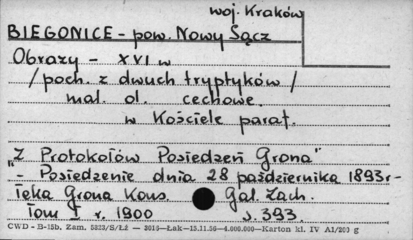 woj. Kraków
BIEGONICE - pow. Nowy Sącz
Obrazy - XVI w
/poch. z dwuch tryptyków/
mal. ol. cechowe.
w Kościele paraf.
"Z Protokołów Posiedzeń Grona"
- Posiedzenie dnia 28 października 1893r -
Teka Grona Kons. Gal. Zach.
Tom I r. 1900 s. 393.
CWD - B-15b, Zam. 5823/S/Łź — 3016—Łak—15.11.56—4.000.000—Karton kl. IV A1/200 g